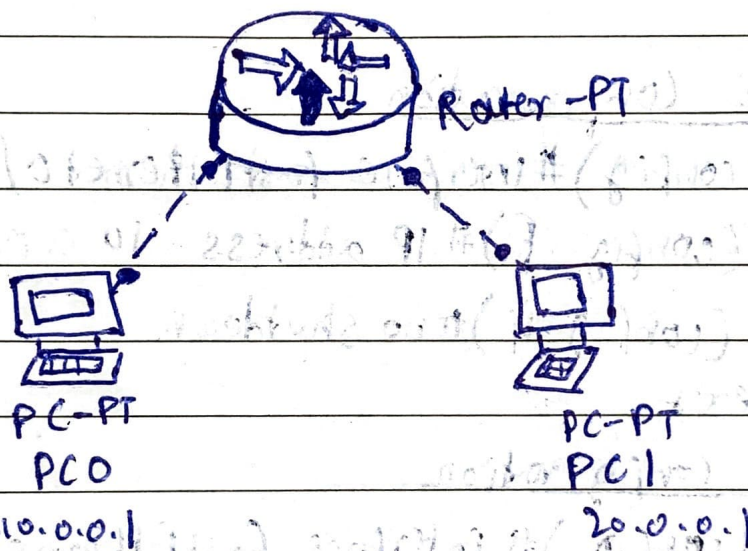 Router-PT
PC-PT
PC0
10.0.0.1
PC-PT
PC1
20.0.0.1